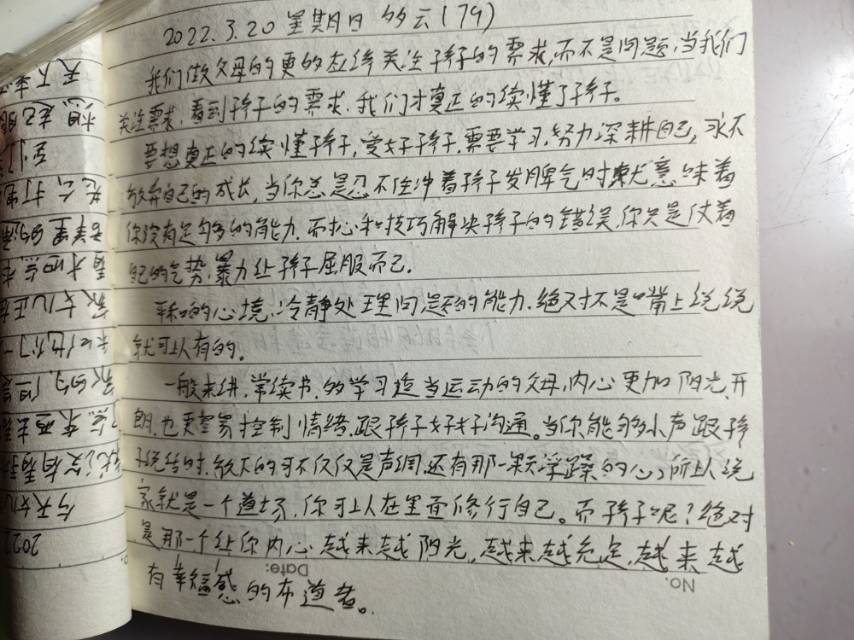 2022.3.20 星期日 多云(79)
我们做父母的更的应该关注孩子的需求,而不是问题,当我们
关注需求,看到孩子的需求,我们才真正的读懂了孩子。
要想真正的读懂孩子,爱好孩子,需要学习,努力深耕自己,永不
放弃自己的成长,当你总是忍不住冲着孩子发脾气时,就意味着
你没有足够多的能力,而担心和技巧解决孩子的错误,你只是仗着
自己的气势,暴力让孩子屈服而已。
平和的心境,冷静处理问题的能力,绝对不是嘴上说说
就可以有的。
一般来讲,常读书,的学习适当运动的父母,内心更加阳光,开
朗,也更容易控制情绪,跟孩子好好沟通。当你能够小声跟孩
子说话时,放下的可不仅仅是声调,还有那一颗浮躁的心,所以说
家就是一个道场,你可以在里面修行自己。而孩子呢?绝对
是那一个让你内心越来越阳光,越来越充定,越来越
有幸福感的布道者。
Date:
No.